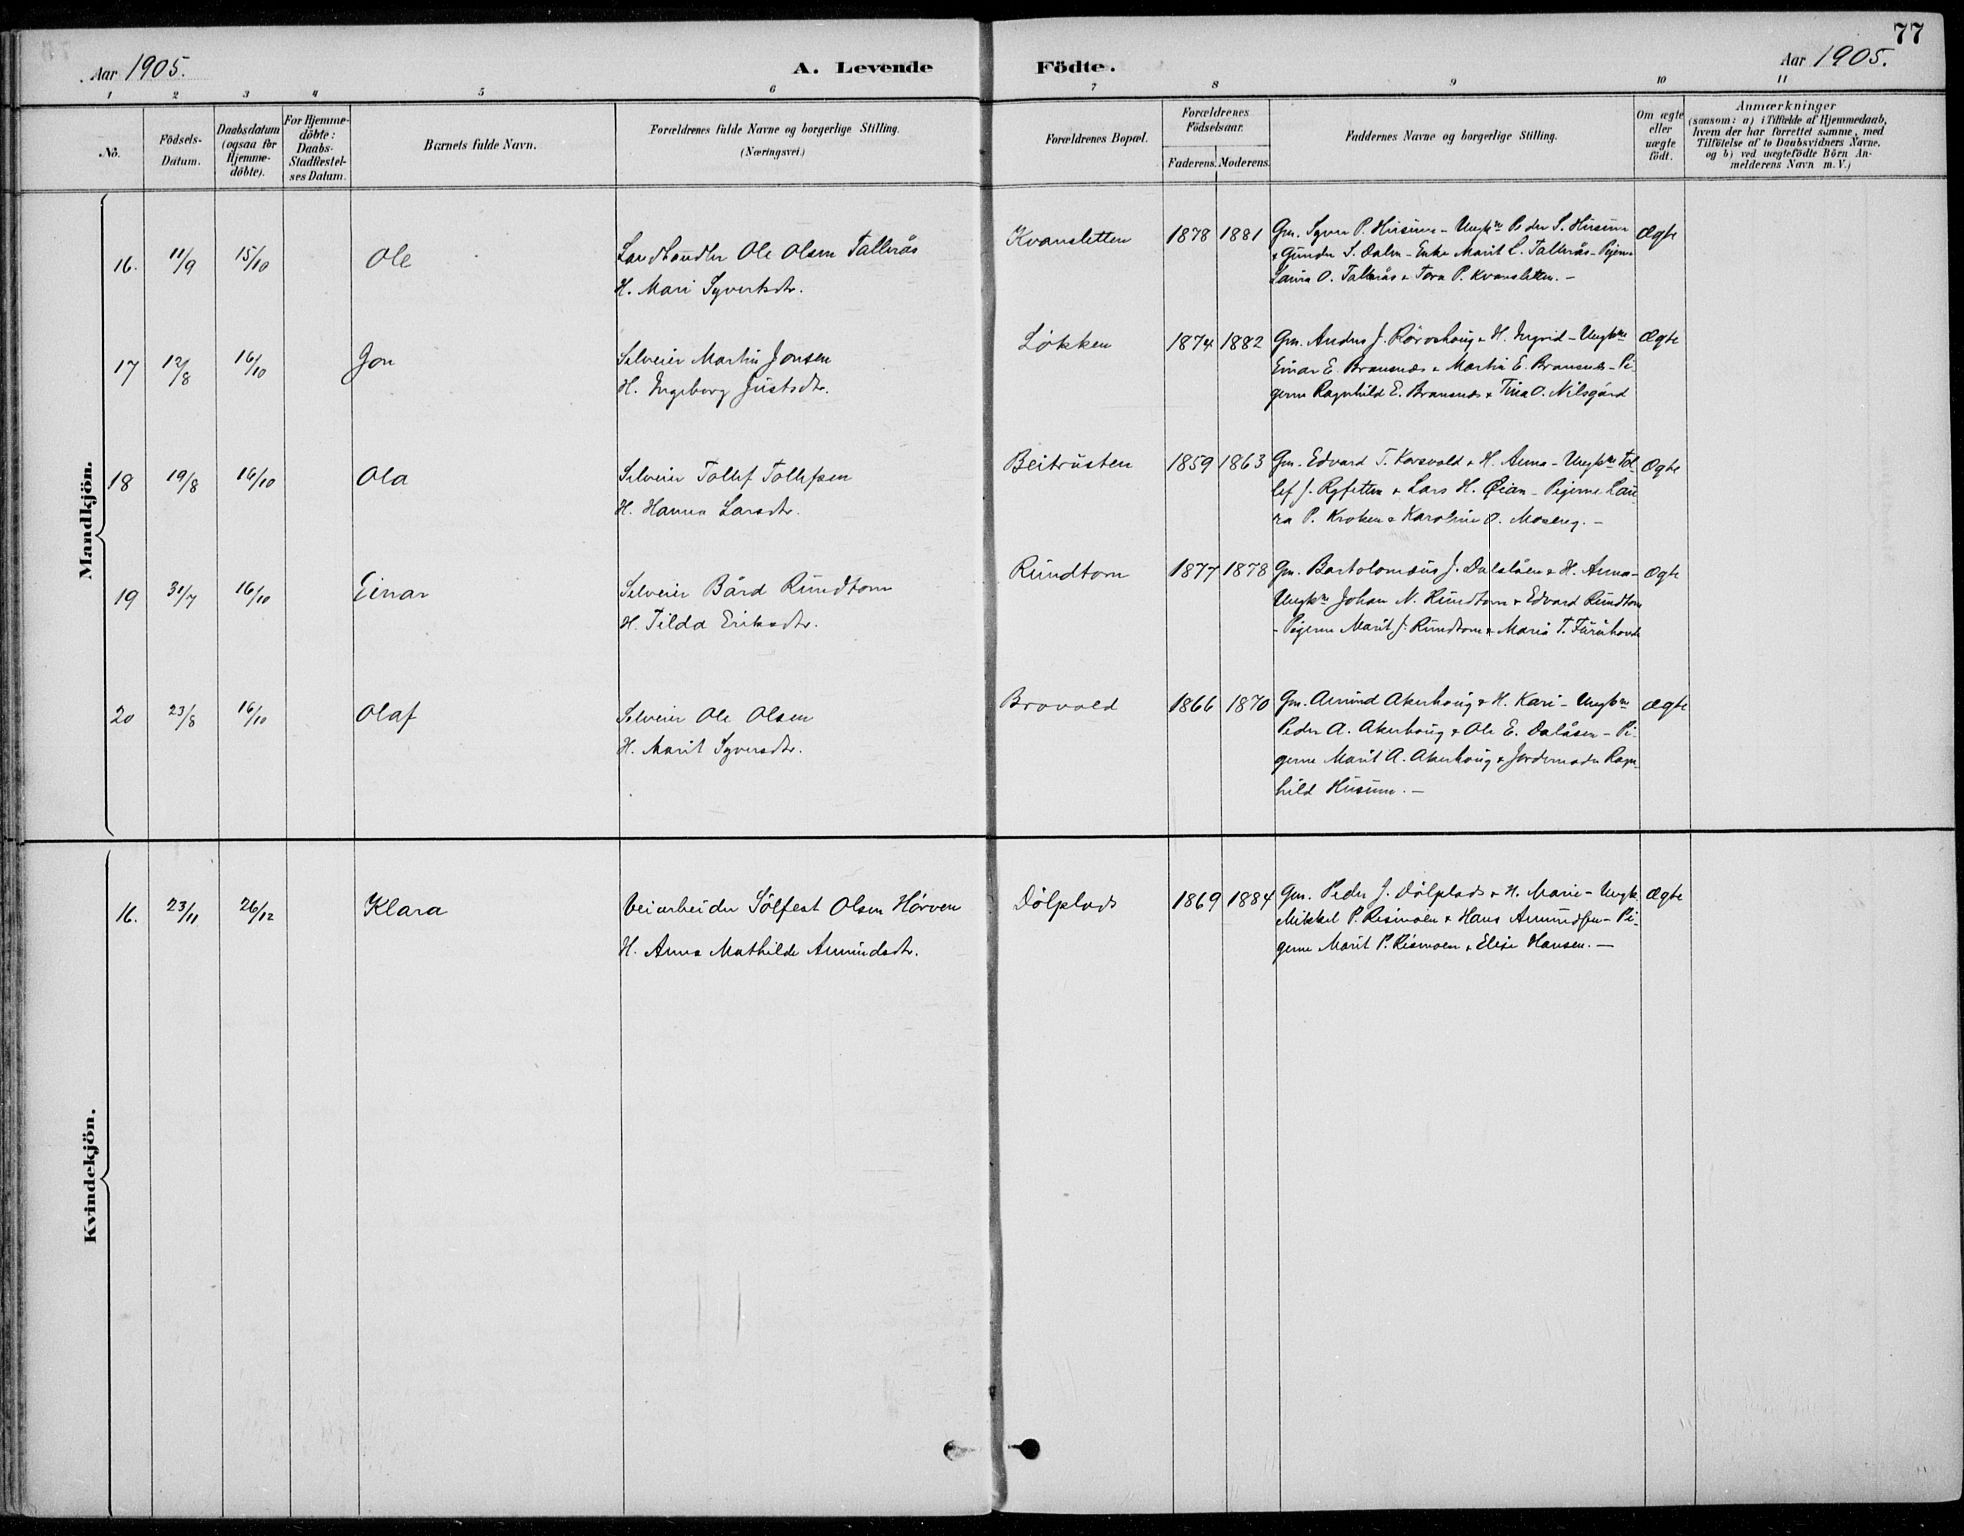 77
Aar 1905.
A. Levende Födte.
Aar 1905.
1 2 3 4 5 6 7 8 9 10 11
No.
Födsels-
Datum.
Daabsdatum
(ogsaa for
Hjemme-
döbte).
For Hjemme-
döbte:
Daabs-
Stadfæstel-
ses Datum.
Barnets fulde Navn.
Forældrenes fulde Navne og borgerlige Stilling.
(Næringsvei.)
Forældrenes Bopæl.
Forældrenes
Födselsaar.
Faderens. Moderens.
Faddernes Navne og borgerlige Stilling.
Om ægte
eller
uægte
födt.
Anmærkninger
(saasom: a) i Tilfælde af Hjemmedaab,
hvem der har forrettet samme, med
Tilföielse af to Daabsvidners Navne,
og b) ved uægtefödte Börn An-
melderens Navn m. V.)
Mandkjön.
16. 11/9 15/10 Ole
Landhandler Ole Olsen Tallerås
H. Mari Syvertsdtr.
Kvansletten 1878 1881
Gm. Syver P. Husum - Ungkm Peder S. Husum
& Gunder S. Dalen - Enke Marit L. Tallerås - Pigerne
Laura O. Tallerås & Tora P. Kvansletten. -
Ægte
17 12/8 16/10 Jon
Selveier Martin Jonsen
H. Ingeborg Justsdtr.
Løkken 1874 1882
Gm. Anders J. Rörvehoug & H. Ingrid - Ungkm
Einar E. Bransnæs & Martin E. Bransnæs - Pi-
gerne Ragnhild E. Bransnæs & Tina O. Nilsgård
Ægte
18 19/8 16/10 Ola
Selveier Tollef Tollefsen
H. Hanna Larsdtr.
Beitrusten 1859 1863
Gm. Edvard T. Korsvold & H. Anna - Ungkm Tol-
lef J. & Lars H. Øian - Pigerne Lau-
ra P. Kroken & Karoline O. Moseng. -
Ægte
19 31/7 16/10 Einar
Selveier Bård Rundtom
H. Tilda Eriksdtr.
Rundtom 1877 1878
Gm. Bartolomæus J. Dalslåen & H. Anna -
Ungkm Johan N. Rundtom & Edvard Rundtom
- Pigerne Marit J. Rundtom & Maria T. Furuhovde
Ægte
20 23/8 16/10 Olaf
Selveier Ole Olsen
H. Marit Syversdtr.
Brovold 1866 1870
Gm. Amund Akerhoug & H. Kari - Ungkm
Peder A. Akerhoug & Ole E. Dalåsen - Pi-
gerne Marit A. Akerhoug & Jordemoder Ragn-
hild Husum. -
Ægte
Kvindekjön.
16. 23/11 26/12 Klara
Veiarbeider Sölfest Olsen Hörven
H. Anna Mathilde Amundsdtr.
Dölplads 1869 1884
Gm. Peder J. Dölplads & H. Marie - Ungk.
Mikkel P. Rismoen & Hans Amundsen - Pi-
gerne Marit P. Rismoen & Elise Hansen. -
Ægte